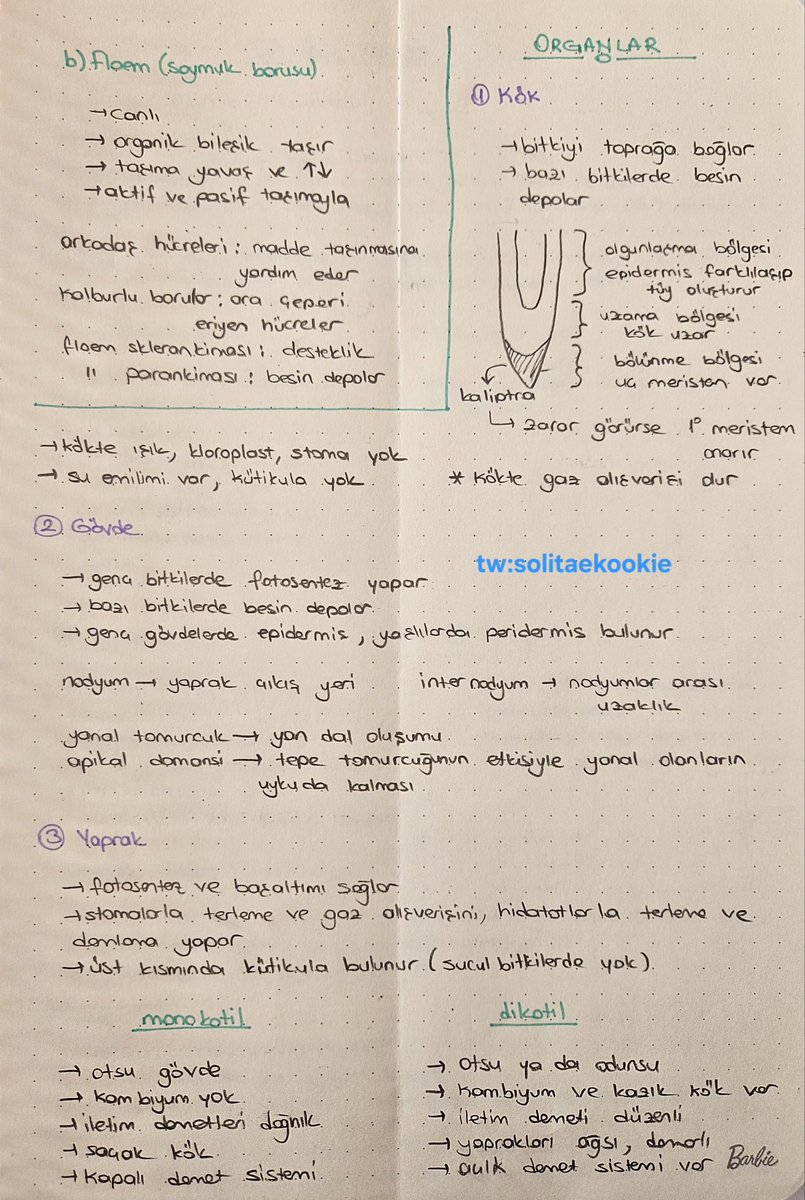 b) floem (soymuk borusu)
→ canlı
→ organik bileşik taşır
→ taşıma yavaş ve ↑↓
→ aktif ve pasif taşımayla
arkadaş hücreleri : madde taşınmasına
yardım eder
kalburlu borular : ara çeperi
eriyen hücreler
floem sklerankiması : desteklik
" parankiması : besin depolar
ORGANLAR
① Kök
→ bitkiyi toprağa bağlar
→ bazı bitkilerde besin
depolar
olgunlaşma bölgesi
epidermis farklılaşıp
tüy oluşturur
uzama bölgesi
kök uzar
bölünme bölgesi
uç meristem var
kaliptra
↳ zarar görürse 1° meristem
onarır
→ kökte ışık, kloroplast, stoma yok
→ su emilimi var, kütikula yok
* kökte gaz alışverişi dur
② Gövde
→ genç bitkilerde fotosentez yapar
→ bazı bitkilerde besin depolar
→ genç gövdelerde epidermis, yaşlılarda peridermis bulunur
nodyum → yaprak çıkış yeri
internodyum → nodyumlar arası
uzaklık
yanal tomurcuk → yan dal oluşumu
apikal domansi → tepe tomurcuğunun etkisiyle yanal olanların
uykuda kalması
tw:solitaekookie
③ Yaprak
→ fotosentez ve boşaltımı sağlar
→ stomalarla terleme ve gaz alışverişini, hidatotlarla terleme ve
damlama yapar
→ üst kısmında kütikula bulunur (sucul bitkilerde yok)
monokotil
→ otsu gövde
→ kambiyum yok
→ iletim demetleri dağınık
→ saçak kök
→ kapalı demet sistemi
dikotil
→ otsu ya da odunsu
→ kambiyum ve kazık kök var
→ iletim demeti düzenli
→ yaprakları ağsı, damarlı
→ açık demet sistemi var
Barbie